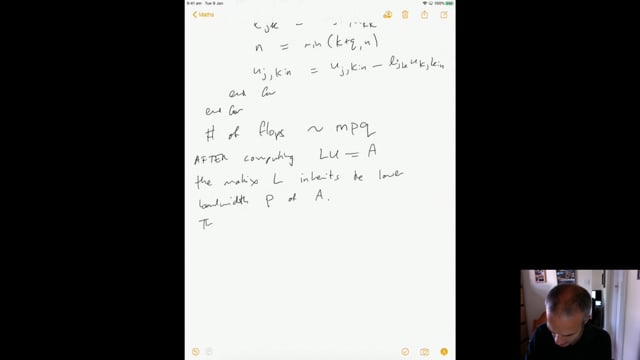 9:41 am Tue 9 Jan
100%
Maths
n = min (k+q, n)
u j,k:n = u j,k:n − l jk u k,k:n
end for
end for
# of flops ~ mpq
AFTER computing LU = A
the matrix L inherits the lower
bandwidth p of A.
Th